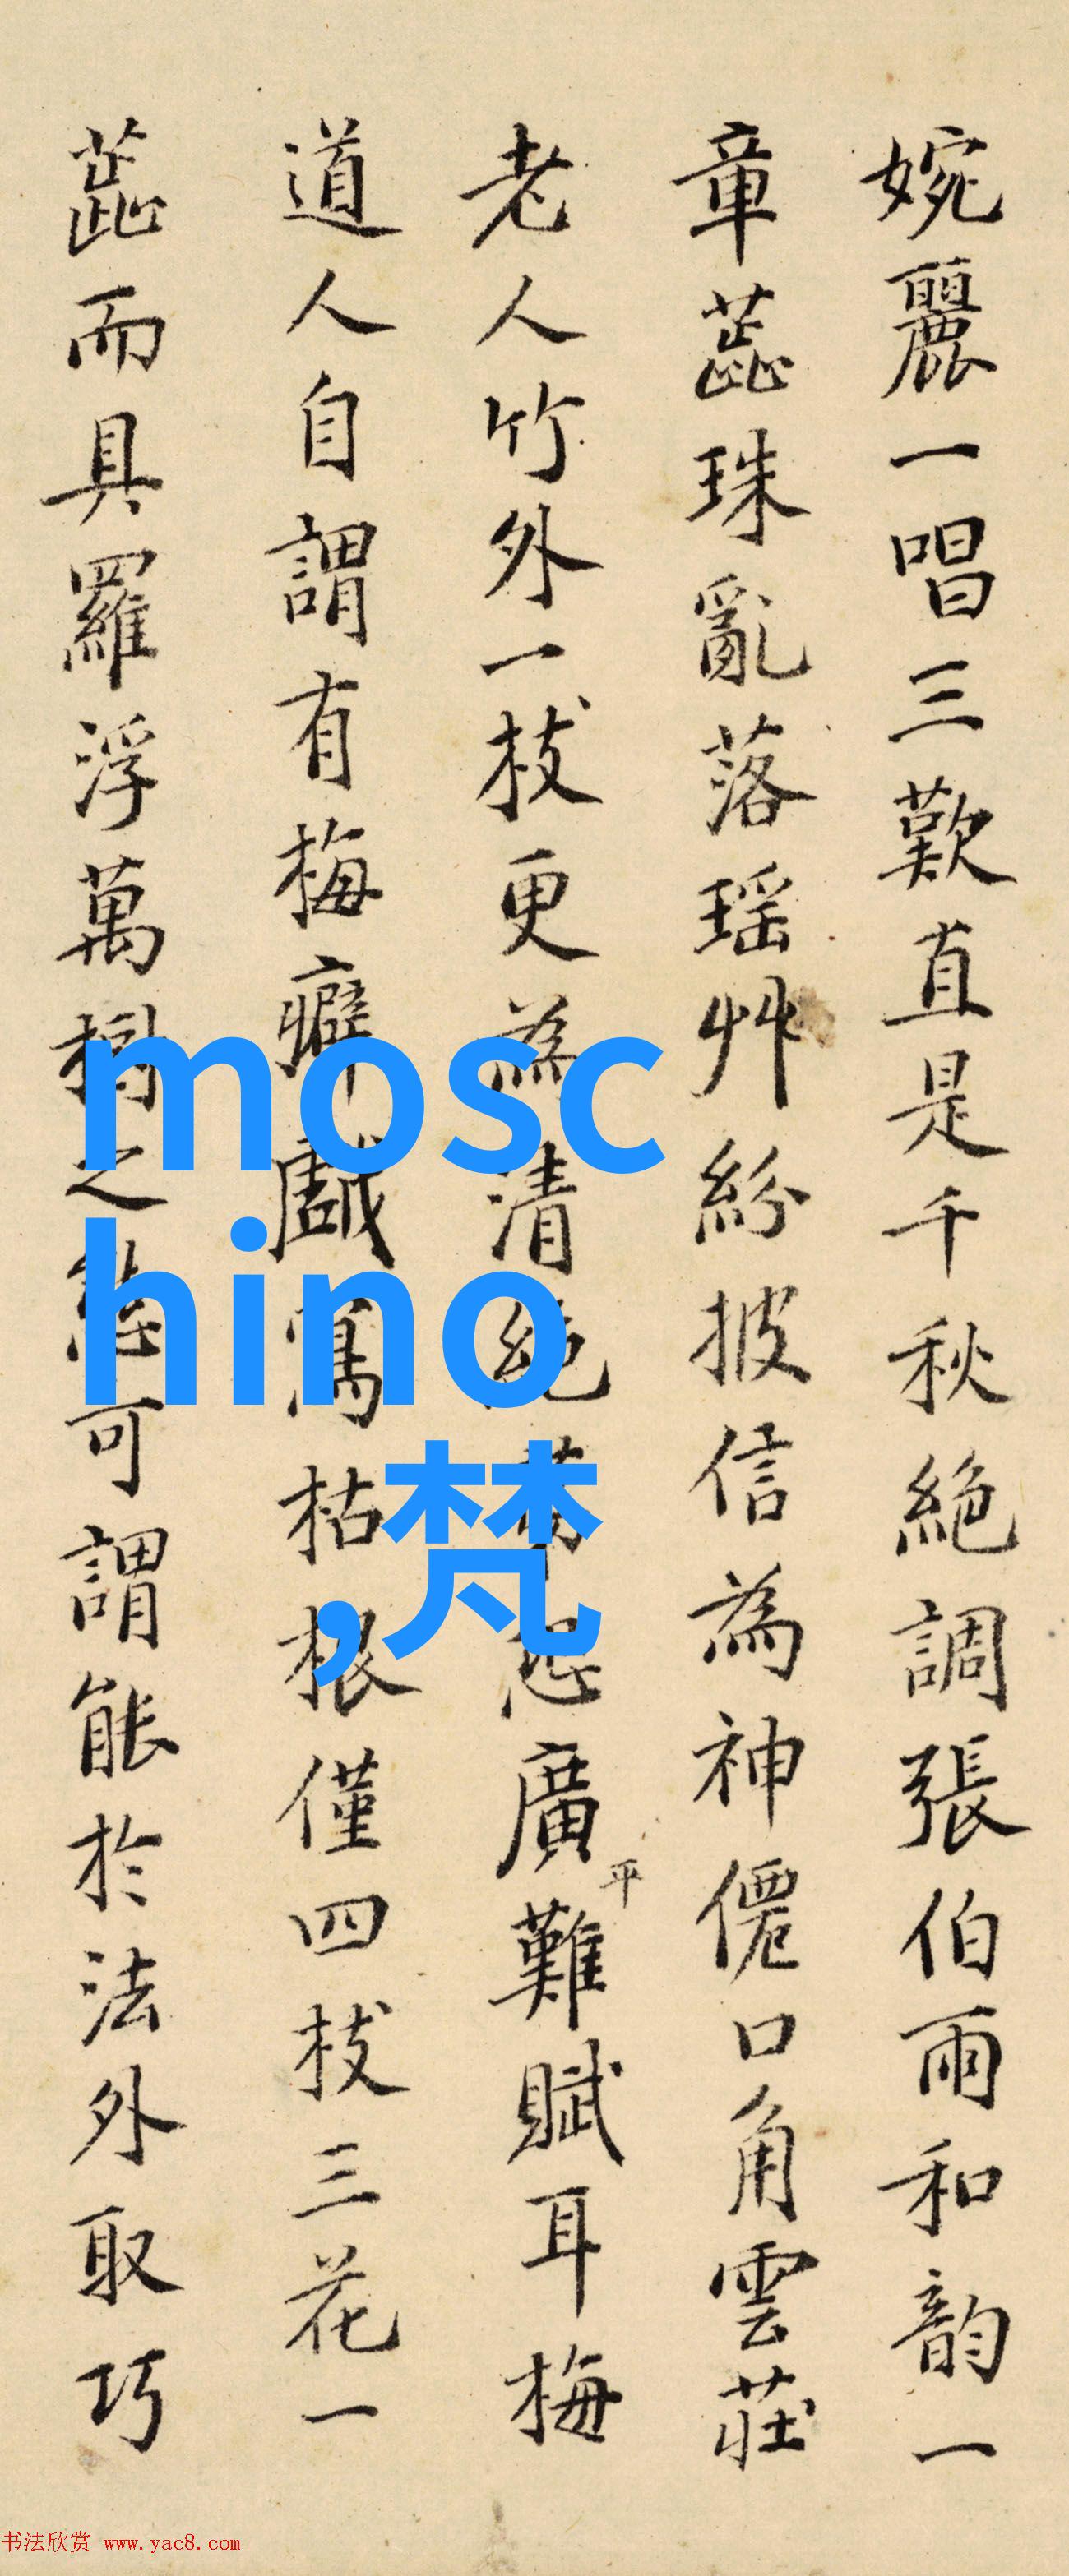 婉麗一唱三歎直是千秋絶調張伯雨和韵一
章蕋珠亂落瑶艸紛披信為神僊口角雲莊
老人竹外一枝更為清絶 廣平難賦耳梅
道人自謂有梅癖戲寫枯根僅四枝三花一
蕋而具羅浮萬樹之態可謂能於法外取巧
mosc
hino
,梵
书法欣赏 www.yac8.com